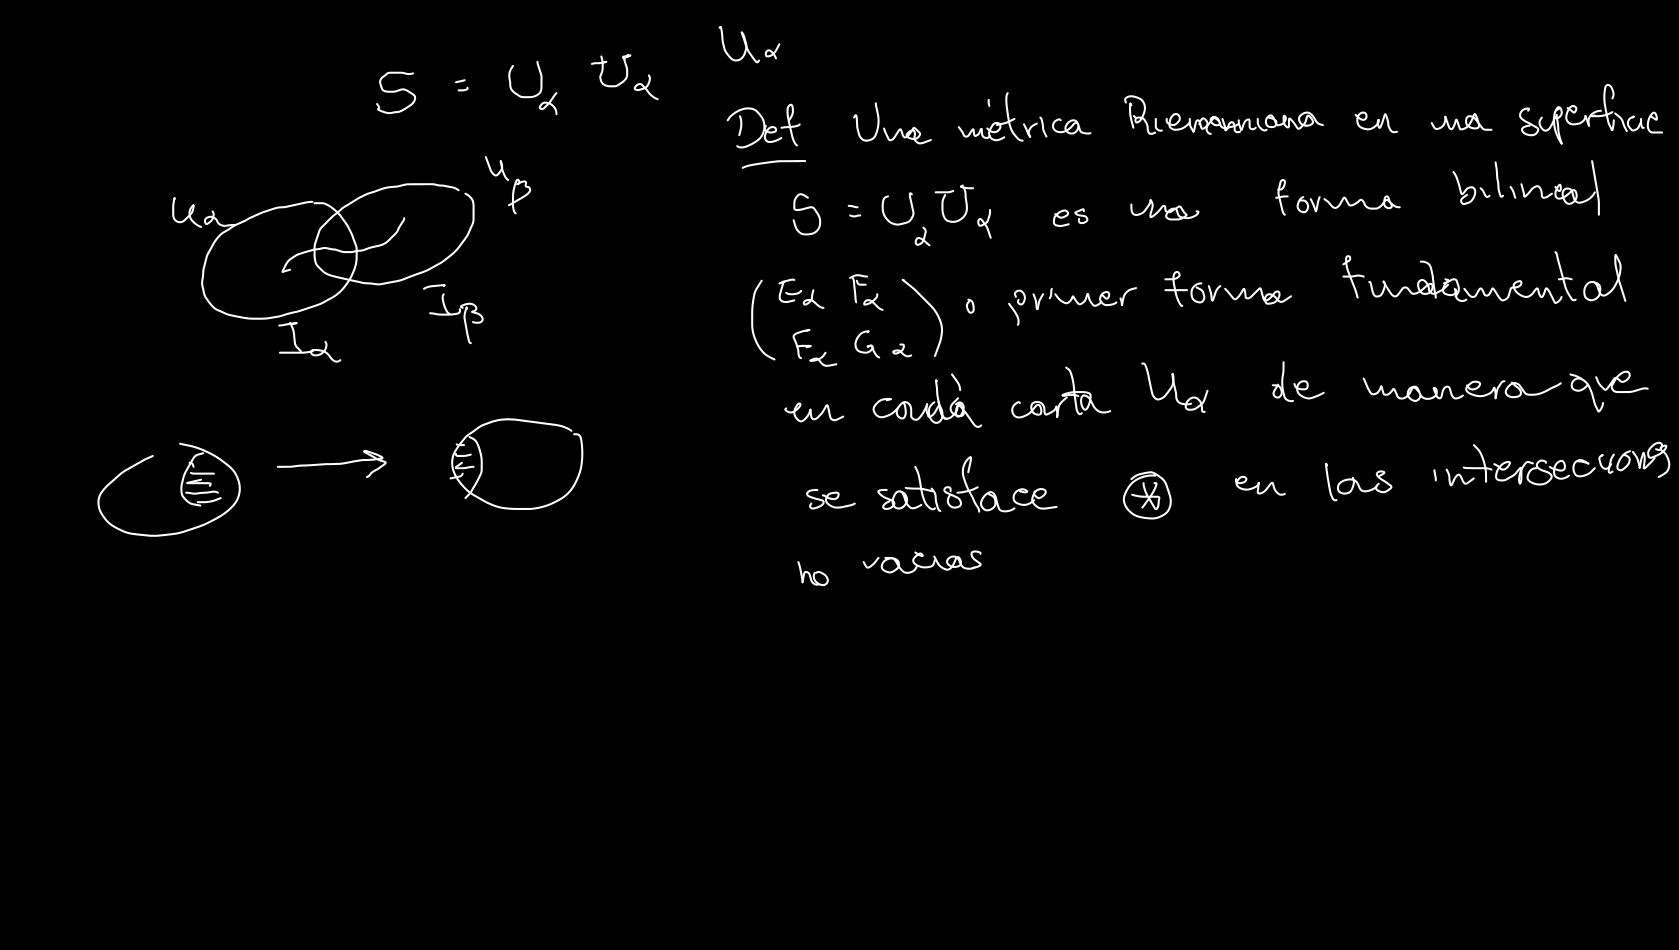 S = ∪α Uα
Uα
Def Una métrica Riemanniana en una superficie
S = ∪α Uα es una forma bilineal
(Eα Fα
Fα Gα) o primer forma fundamental
en cada carta Uα de manera que
se satisface ⊛ en las intersecciones
no vacias
Uα
Uβ
Iβ
Iα